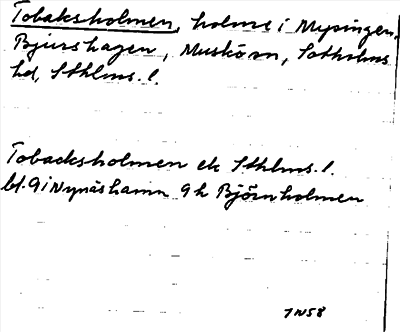 Tobaksholmen, holme i Mysingen,
Bjurshagen, Muskö sn, Sotholms
hd, Sthlms. l.
Tobacksholmen ek Sthlms. l.
bl. 9 i Nynäshamn 9 h Björnholmen
7 N 58